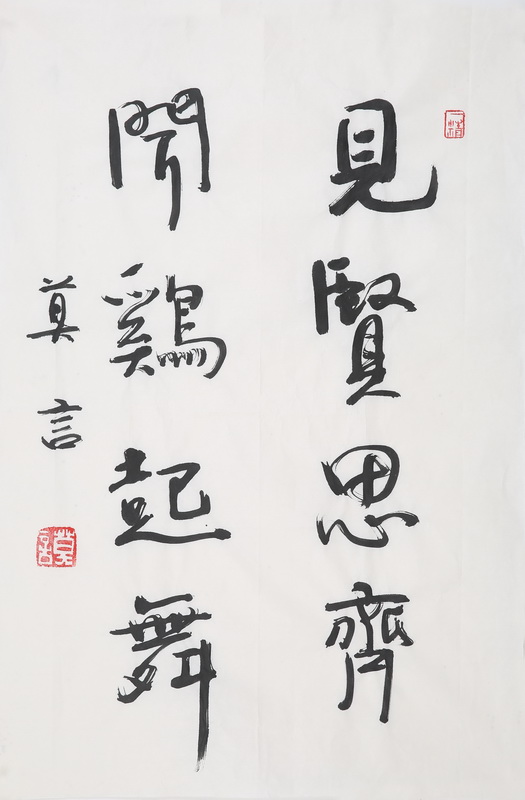 見賢思齊
聞鷄起舞
莫言